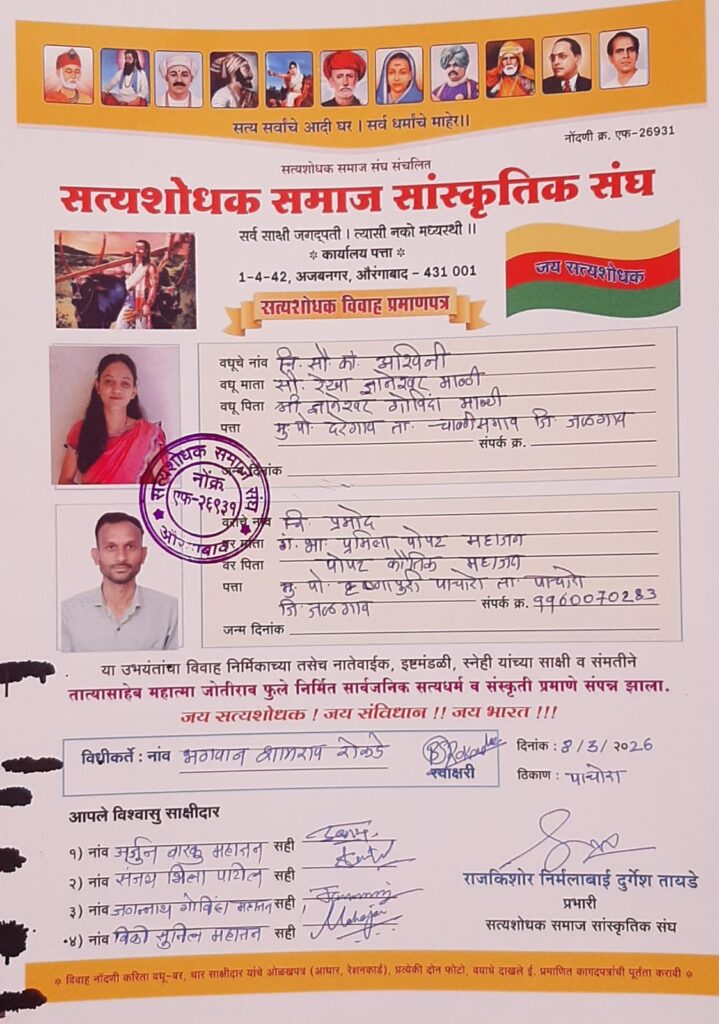 सत्य सर्वांचे आदी घर । सर्व धर्मांचे माहेर।।
नोंदणी क्र. एफ-26931
सत्यशोधक समाज संघ संचलित
सत्यशोधक समाज सांस्कृतिक संघ
सर्व साक्षी जगद्पती । त्यासी नको मध्यस्थी ।।
* कार्यालय पत्ता *
1-4-42, अजबनगर, औरंगाबाद - 431 001
जय सत्यशोधक
सत्यशोधक विवाह प्रमाणपत्र
वधूचे नांव चि. सौ. कां. अश्विनी
वधू माता सौ. रेखा ज्ञानेश्वर माळी
वधू पिता श्री ज्ञानेश्वर गोविंदा माळी
पत्ता मु. पो. दरेगाव ता. चाळीसगाव जि. जळगाव
संपर्क क्र.
जन्म दिनांक
सत्यशोधक समाज संघ
नोंक्र
एफ-२६९३१
औरंगाबाद
वराचे नांव चि. प्रमोद
वर माता गं. भा. प्रमिला पोपट महाजन
वर पिता पोपट कौतिक महाजन
पत्ता मु. पो. कृष्णापुरी पाचोरा ता. पाचोरा
जि. जळगाव संपर्क क्र. 9960070283
जन्म दिनांक
या उभयंतांचा विवाह निर्मिकाच्या तसेच नातेवाईक, इष्टमंडळी, स्नेही यांच्या साक्षी व संमतीने
तात्यासाहेब महात्मा जोतीराव फुले निर्मित सार्वजनिक सत्यधर्म व संस्कृती प्रमाणे संपन्न झाला.
जय सत्यशोधक ! जय संविधान !! जय भारत !!!
विधीकर्ते : नांव भगवान शामराव रोकडे
स्वाक्षरी
दिनांक : 8/3/2026
ठिकाण : पाचोरा
आपले विश्वासु साक्षीदार
१) नांव अर्जुन बारकु महाजन सही
२) नांव संजय भिला पाटील सही
३) नांव जगन्नाथ गोविंदा महाजन सही
४) नांव विकी सुनिल महाजन सही Mahajan
राजकिशोर निर्मलाबाई दुर्गेश तायडे
प्रभारी
सत्यशोधक समाज सांस्कृतिक संघ
* विवाह नोंदणी करिता वधू-वर, चार साक्षीदार यांचे ओळखपत्र (आधार, रेशनकार्ड), प्रत्येकी दोन फोटो, वयाचे दाखले ई. प्रमाणित कागदपत्रांची पूर्तता करावी *